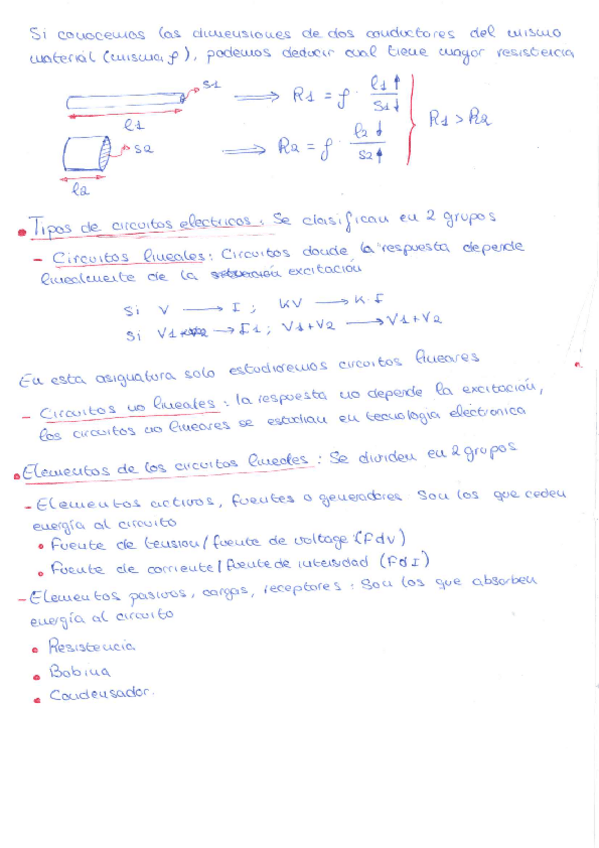 Si conocemos las dimensiones de dos conductores del mismo
material (misma ρ), podemos deducir cual tiene mayor resistencia
S1
l1
⟹ R1 = ρ · l1↑ / S1↓
S2
l2
⟹ R2 = ρ · l2↓ / S2↑
R1 > R2
• Tipos de circuitos electricos: Se clasifican en 2 grupos
- Circuitos lineales: Circuitos donde la respuesta depende
linealmente de la excitación
Si V → I ; KV → K·I
Si V1 → I1 ; V1+V2 → V1+V2
En esta asignatura solo estudiaremos circuitos lineares
- Circuitos no lineales: la respuesta no depende la excitación,
los circuitos no lineares se estudian en tecnologia electronica
• Elementos de los circuitos lineales: Se dividen en 2 grupos
- Elementos activos, fuentes o generadores Son los que ceden
energía al circuito
• Fuente de tension/fuente de voltage (FdV)
• Fuente de corriente/fuente de intensidad (FdI)
- Elementos pasivos, cargas, receptores: Son los que absorben
energía al circuito
• Resistencia
• Bobina
• Condensador.